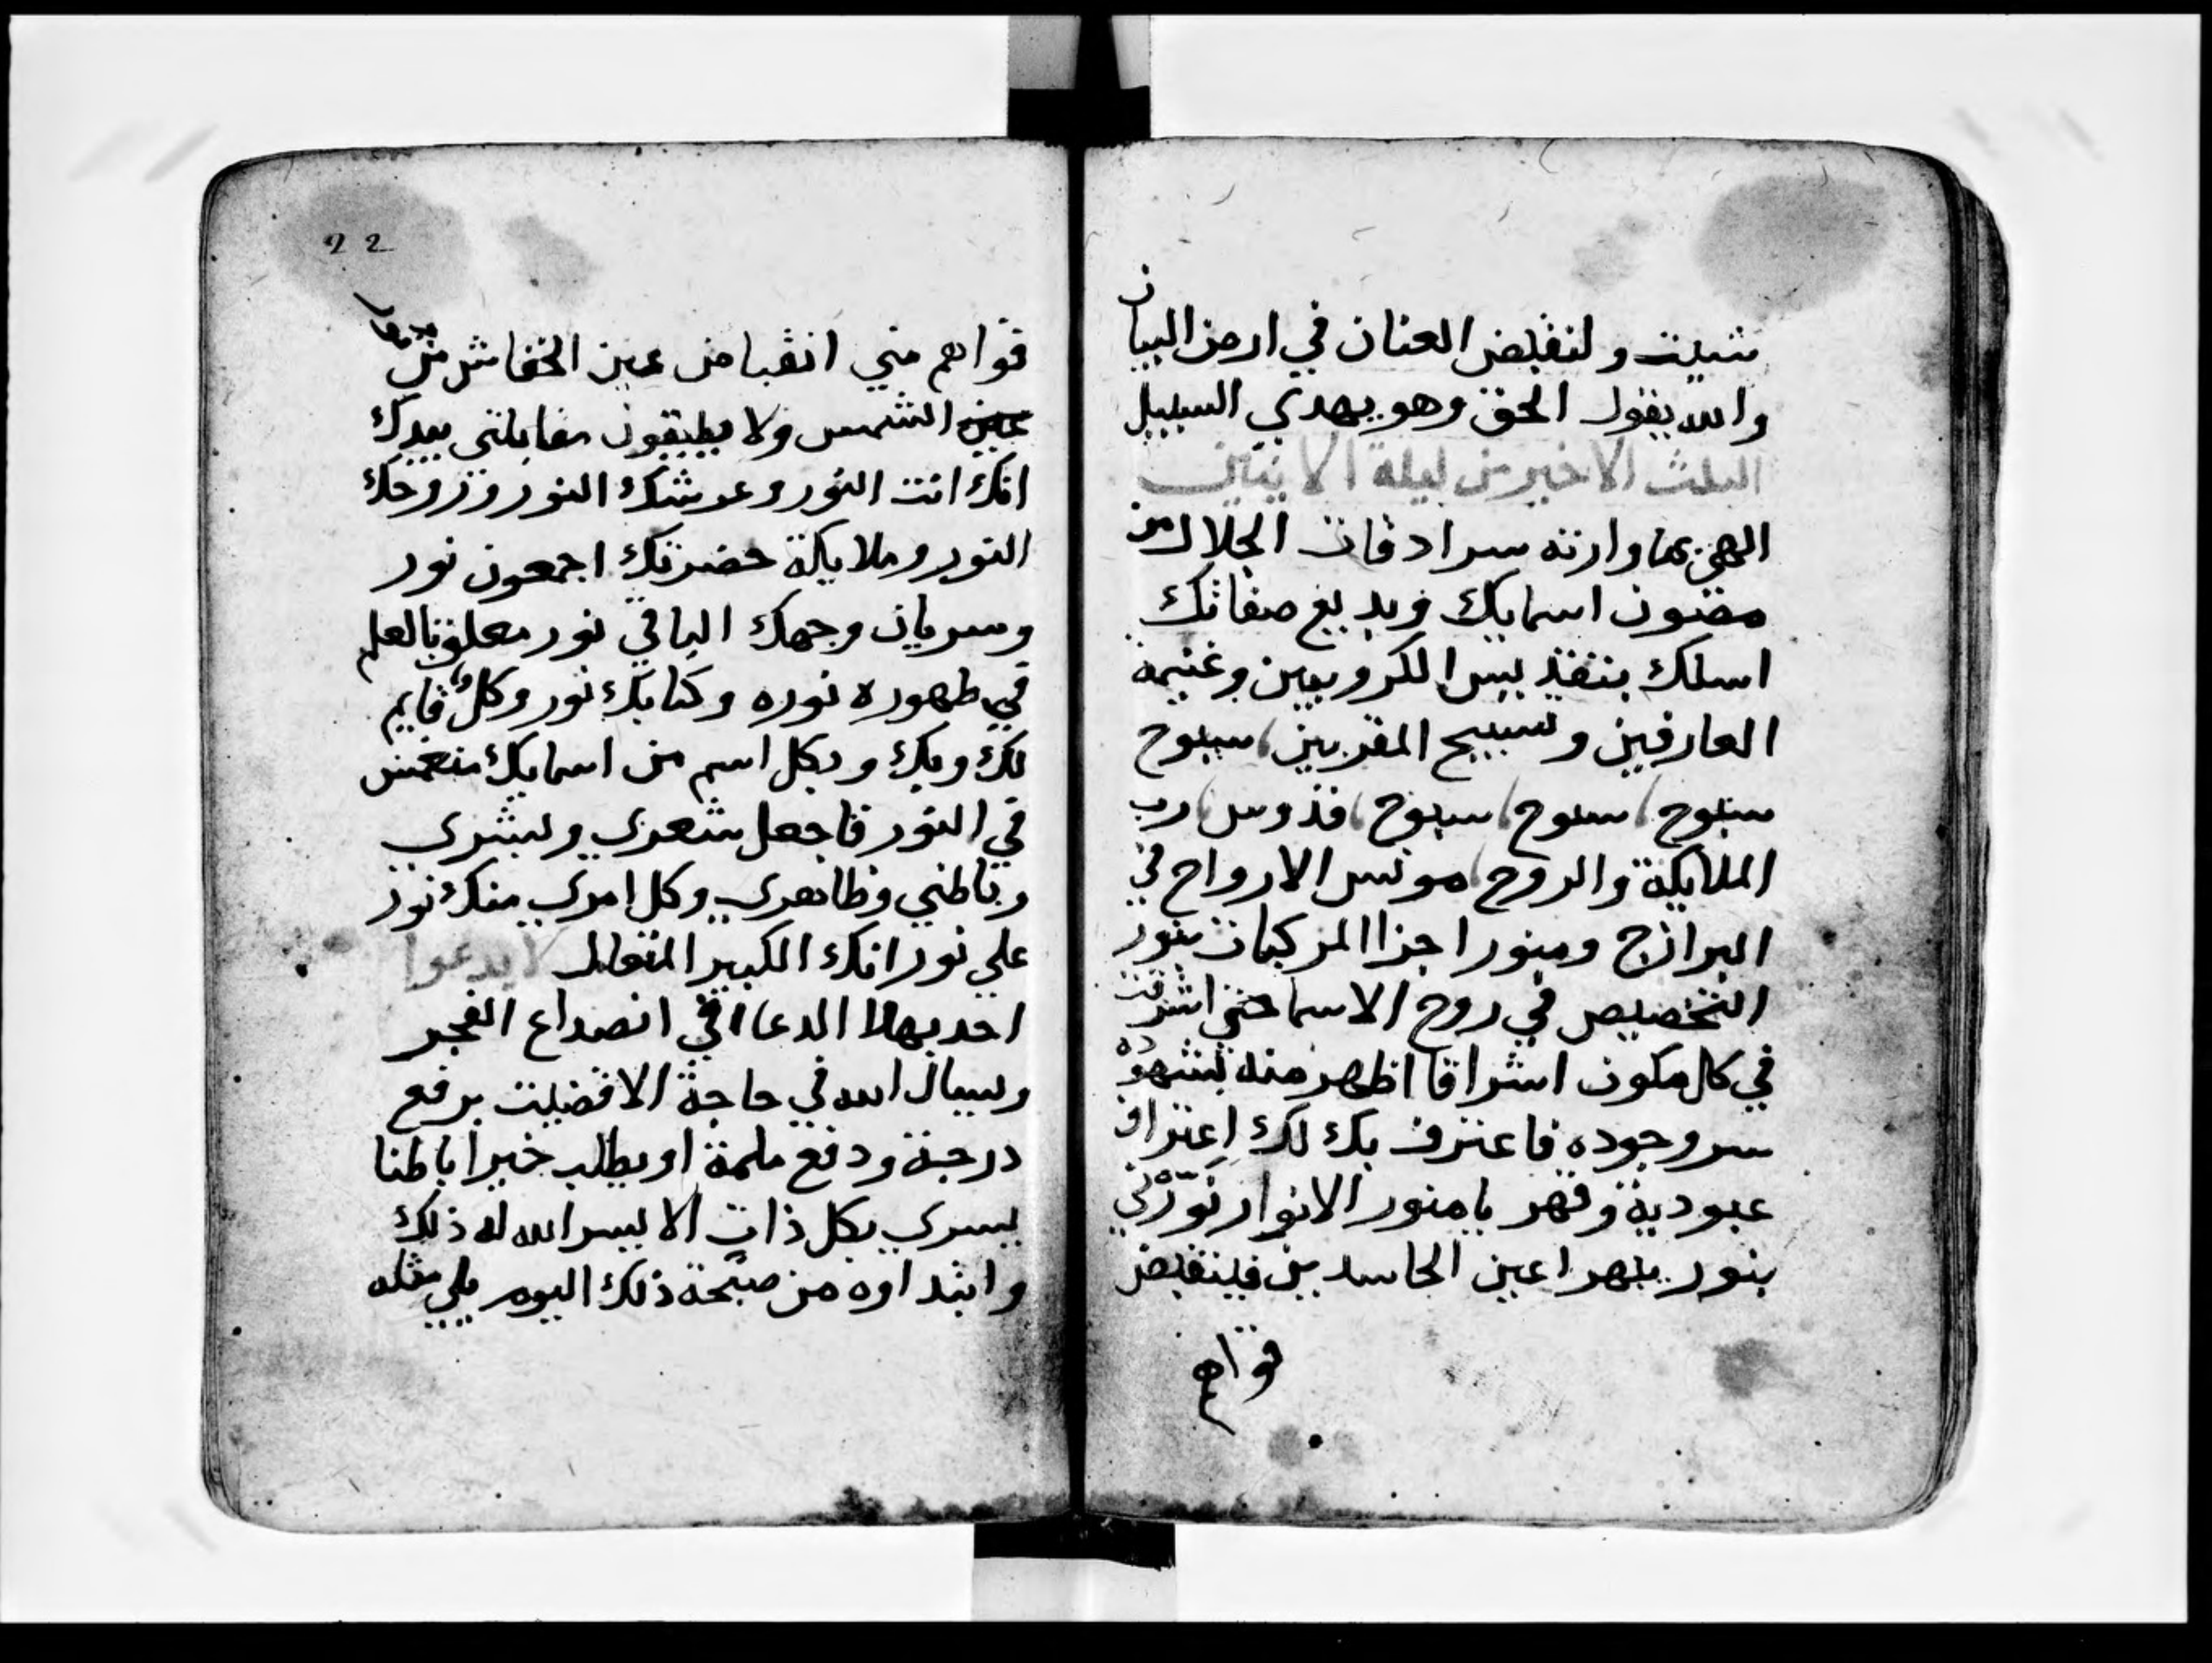 شيت ولنقبض العنان في ارض البيان
والله يقول الحق وهو يهدي السبيل
الثلث الاخير من ليلة الاثنين
الهي بما وارته سرادقات الجلال من
مصون اسمايك وبديع صفاتك
اسلك بتقديس الكروبيين وغنيمة
العارفين وتسبيح المقربين سبوح
سبوح سبوح سبوح قدوس رب
الملايكة والروح مونس الارواح في
البرازخ ومنور اجزا المركبات بنور
التخصيص في روح الاسما حتى اشرقت
في كل مكون اشراقا اظهر منه بشهوده
سر وجوده فاعترف بك لك اعتراف
عبودية وقهر يا منور الانوار نورني
بنور يبهر اعين الحاسدين فينقبض
قواهم
22
قواهم مني انقباض عين الخفاش من
عين الشمس ولا يطيقون مقابلتي بيدك
انك انت النور وعرشك النور وروحك
النور وملايكة حضرتك اجمعون نور
وسريان وجهك الباقي نور معلوم بالعلم
في ظهوره نوره وكتابك نور وكل قايم
لك وبك وبكل اسم من اسمايك منغمس
في النور فاجعل شعري وبشري
وباطني وظاهري وكل امري منك نور
علي نور انك الكبير المتعال لا يدعوا
احد بهذا الدعا في انصداع الفجر
ويسال الله في حاجة الا قضيت برفع
درجة ودفع ملمة او يطلب خيرا باطنا
يسري بكل ذات الا يسر الله له ذلك
وابتداوه من صبحة ذلك اليوم يلي مثله